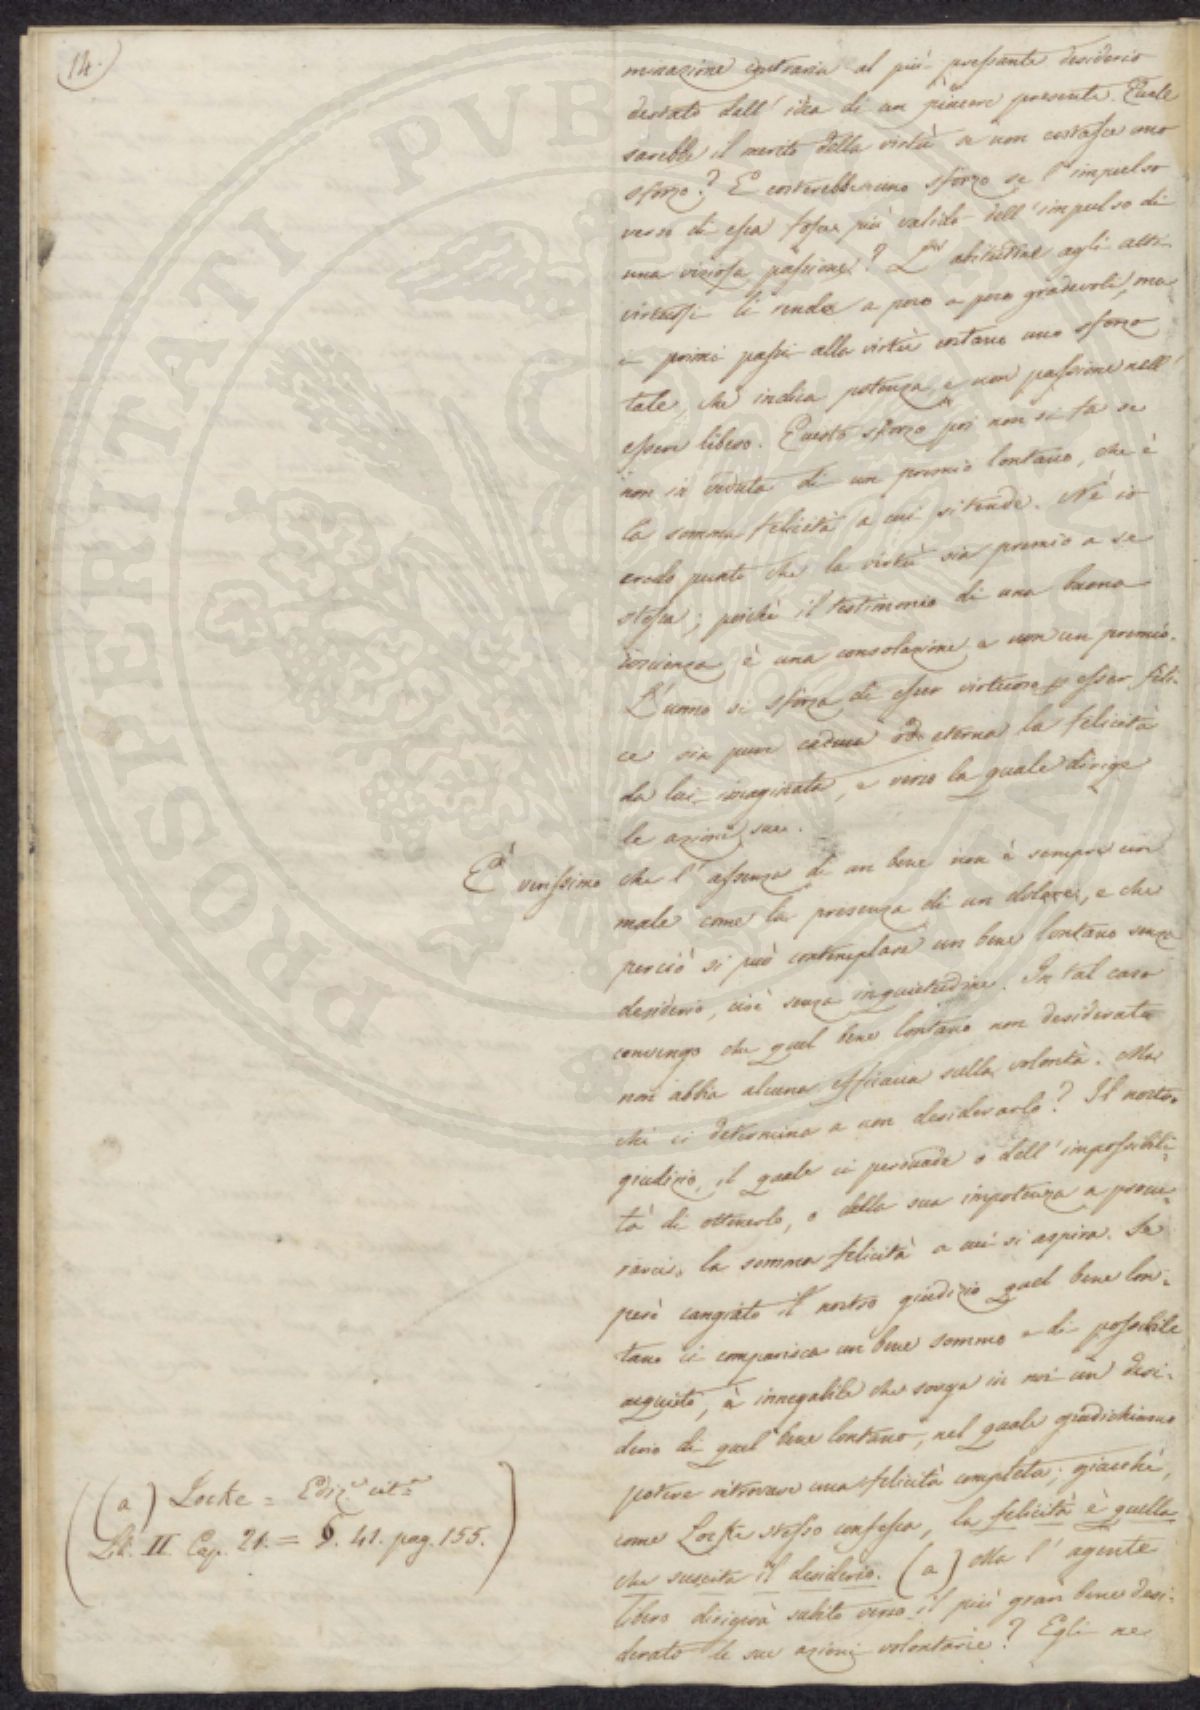 14.
minazione contraria al più pressante desiderio
destato dall' idea di un piacere presente. Quale
sarebbe il merito della virtù se non costasse uno
sforzo? E costerebbe uno sforzo se l' impulso
verso di essa fosse più valido dell' impulso di
una viziosa passione? L' abitudine agli atti
virtuosi li rende a poco a poco gradevoli, ma
i primi passi alla virtù costano uno sforzo
tale, che indica potenza, e non passione nell'
essere libero. Questo sforzo poi non si fa se
non in veduta di un premio lontano, che è
la somma felicità a cui si tende. Nè io
credo punto che la virtù sia premio a se
stessa; poichè il testimonio di una buona
coscienza è una consolazione e non un premio.
L' uomo si sforza di esser virtuoso p esser feli-
ce sia pure caduca od eterna la felicità
da lui imaginata, e verso la quale dirige
le azioni sue.
È verissimo che l' assenza di un bene non è sempre un
male come la presenza di un dolore, e che
perciò si può contemplare un bene lontano senza
desiderio, cioè senza inquietudine. In tal caso
convengo che quel bene lontano non desiderato
non abbia alcuna efficacia sulla volontà. Ma
chi ci determina a non desiderarlo? Il nostro
giudizio, il quale ci persuade o dell' impossibili-
tà di ottenerlo, o della sua impotenza a procu-
rarci la somma felicità a cui si aspira. Se
però cangiato il nostro giudizio quel bene lon-
tano ci comparisca un bene sommo e di possibile
acquisto, è innegabile che sorga in noi un desi-
derio di quel bene lontano, nel quale giudichiamo
potere ritrovare una felicità completa; giacchè,
come Locke stesso confessa, la felicità è quella
che suscita il desiderio. (a) Ma l' agente
libero dirigerà subito verso il più gran bene desi-
derato le sue azioni volontarie? Egli ne
(a) Locke = Ediz.e cit.a =
Lib. II Cap. 21. = §. 41. pag. 155.